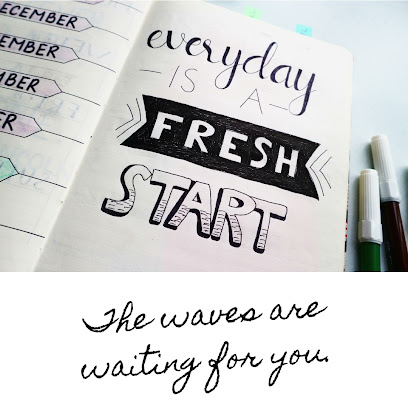 ECEMBER
EMBER
MBER
ER
everyday
IS A
FRESH
START
The waves are
waiting for you.